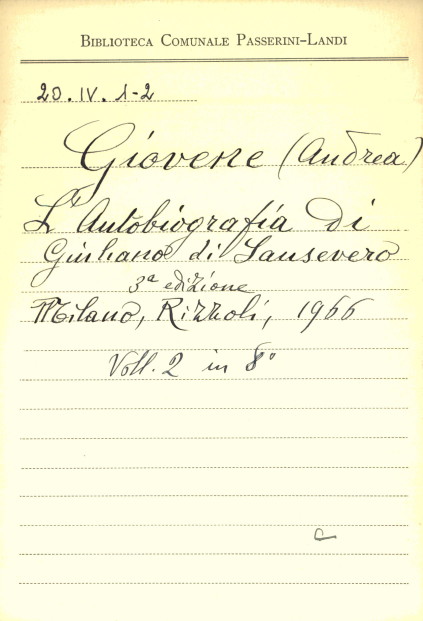 BIBLIOTECA COMUNALE PASSERINI-LANDI
20.IV.1-2
Giovene (Andrea)
L'Autobiografia di
Giuliano di Sansevero
3ª edizione
Milano, Rizzoli, 1966
Voll. 2 in 8°